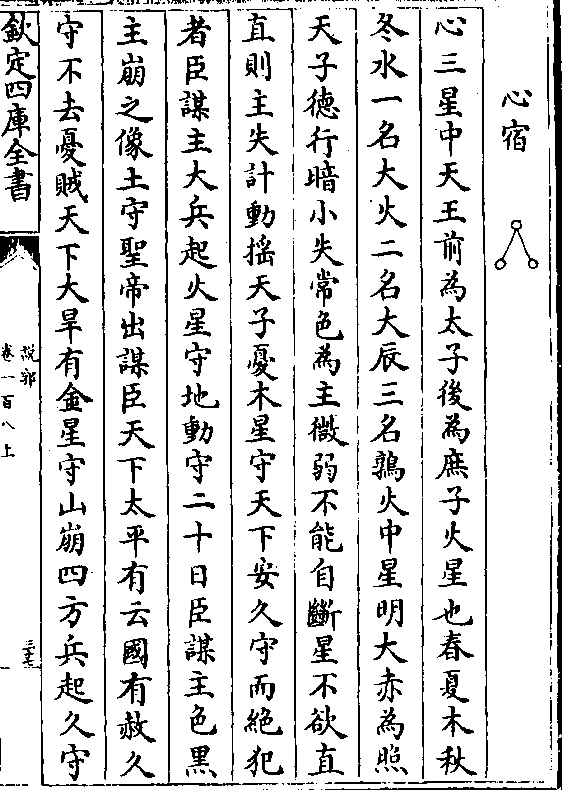 心宿
心三星中天王前為太子後為庶子火星也春夏木秋
冬水一名大火二名大辰三名鶉火中星明大赤為照
天子德行暗小失常色為主微弱不能自斷星不欲直
直則主失計動揺天子憂木星守天下安久守而絶犯
者臣謀主大兵起火星守地動守二十日臣謀主色黑
主崩之像土守聖帝出謀臣天下太平有云國有赦久
守不去憂賊天下大旱有金星守山崩四方兵起久守
欽定四庫全書
說郛
卷一百八上
三十七